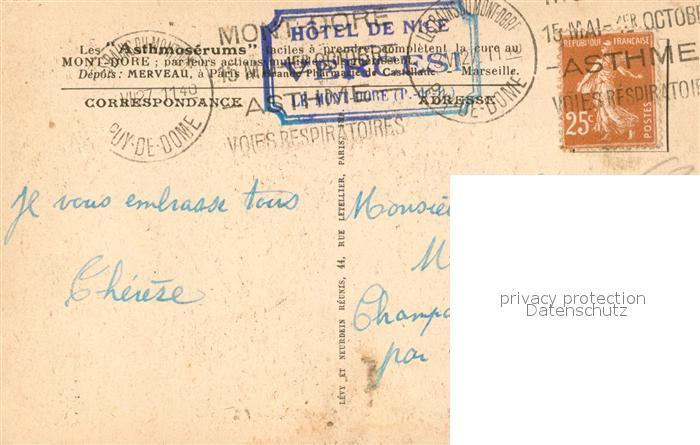 MONT-DORE
15 MAI - 1ER OCTOBRE
ASTHME
VOIES RESPIRATOIRES
HÔTEL DE NICE
LE MONT-DORE (P.
15 MAI - 1ER OCTOB
ASTHME
VOIES RESPIRATOIRE
Les "Asthmosérums" faciles à prendre, complètent la cure au
MONT-DORE; par leurs actions multiples
Dépôts: MERVEAU, à Paris et Grande Pharmacie de Castellane - Marseille.
CORRESPONDANCE
ADRESSE
11 40
PUY-DE-DOME
DE-DOME
REPUBLIQUE FRANÇAISE
25c
POSTES
Je vous embrasse tous
Thérèse
LÉVY ET NEURDEIN RÉUNIS, 44, RUE LETELLIER, PARIS
Monsie
M
Champ
par
privacy protection
Datenschutz